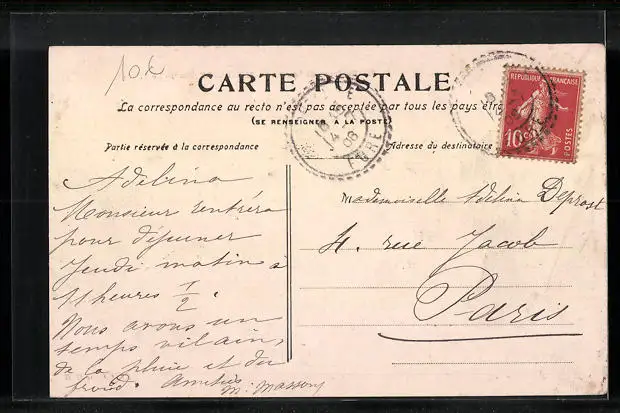 10 €
CARTE POSTALE
La correspondance au recto n'est pas acceptée par tous les pays étra
(SE RENSEIGNER A LA POSTE)
Partie réservée à la correspondance
Adresse du destinataire
REPUBLIQUE FRANÇAISE
10c
POSTES
EURE
Adelina
Monsieur rentrera
pour déjeuner
Jeudi matin à
11 heures 1/2.
Nous avons un
temps vilain,
de la pluie et du
froid. Amitiés
M. Masson
Mademoiselle Adelina Deprost
4. rue Jacob
Paris